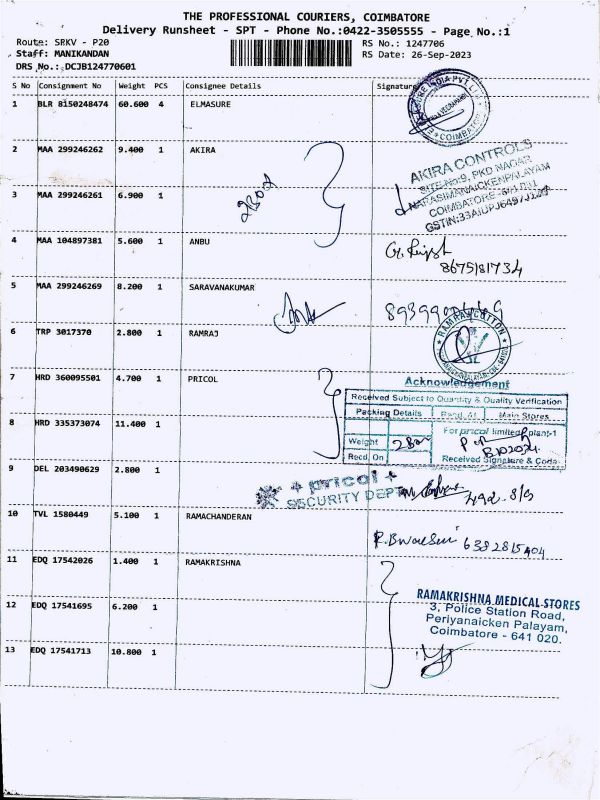 THE PROFESSIONAL COURIERS, COIMBATORE
Delivery Runsheet - SPT - Phone No.:0422-3505555 - Page No.:1
Route: SRKV - P20
RS No.: 1247706
Staff: MANIKANDAN
RS Date: 26-Sep-2023
DRS No.: DCJB124770601
S No Consignment No Weight PCS Consignee Details Signature
1 BLR 8150248474 60.600 4 ELMASURE
COIMBATORE
2 MAA 299246262 9.400 1 AKIRA
AKIRA CONTROLS
SITE No:9, PKD NAGAR
NARASIMANAICKENPALAYAM
3 MAA 299246261 6.900 1
4 MAA 104897381 5.600 1 ANBU
8675181734
5 MAA 299246269 8.200 1 SARAVANAKUMAR
6 TRP 3017370 2.800 1 RAMRAJ
RAMRAJ COTTON
7 HRD 360095501 4.700 1 PRICOL
Acknowledgement
Received Subject to Quantity & Quality Verification
Packing Details Recd. At Main Stores
8 HRD 335373074 11.400 1
For pricol limited plant-1
Weight
Recd. On
Received Signature & Code
9 DEL 203490629 2.800 1
+ pricol +
SECURITY DEPT
10 TVL 1580449 5.100 1 RAMACHANDERAN
11 EDQ 17542026 1.400 1 RAMAKRISHNA
RAMAKRISHNA MEDICAL STORES
3, Police Station Road,
Periyanaicken Palayam,
Coimbatore - 641 020.
12 EDQ 17541695 6.200 1
13 EDQ 17541713 10.800 1